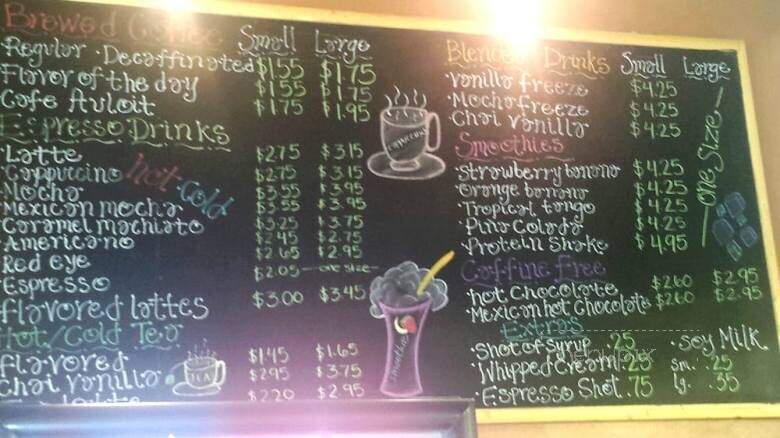 Brewed Coffee Small Large
Regular · Decaffinated $1.55 $1.75
Flavor of the day $1.55 $1.75
Cafe Auloit $1.75 $1.95
Espresso Drinks
·Latte $2.75 $3.15
·Cappuccino $2.75 $3.15
hot · Cold
·Mocha $3.55 $3.95
·Mexican mocha $3.55 $3.95
·Caramel machiato $3.25 $3.75
·Americano $2.45 $2.75
Red eye $2.65 $2.95
·Espresso $2.05 — one size —
flavored lattes $3.00 $3.45
Hot/Cold Tea
flavored $1.45 $1.65
Chai Vanilla $2.95 $3.75
$2.20 $2.95
cappuccino
TEA
smoothie
Blended Drinks Small Large
·Vanilla freeze $4.25
·Mocha freeze $4.25
·Chai Vanilla $4.25
Smoothies
·Strawberry banana $4.25
·Orange banana $4.25
·Tropical tango $4.25
·Pina Colada $4.25
·Protein Shake $4.95
— one size —
Caffine Free
·hot Chocolate $2.60 $2.95
·Mexican hot Chocolate $2.60 $2.95
Extras
·Shot of syrup .25 ·soy Milk
·Whipped Cream .25 sm. .25
·Espresso Shot .75 lg. .35